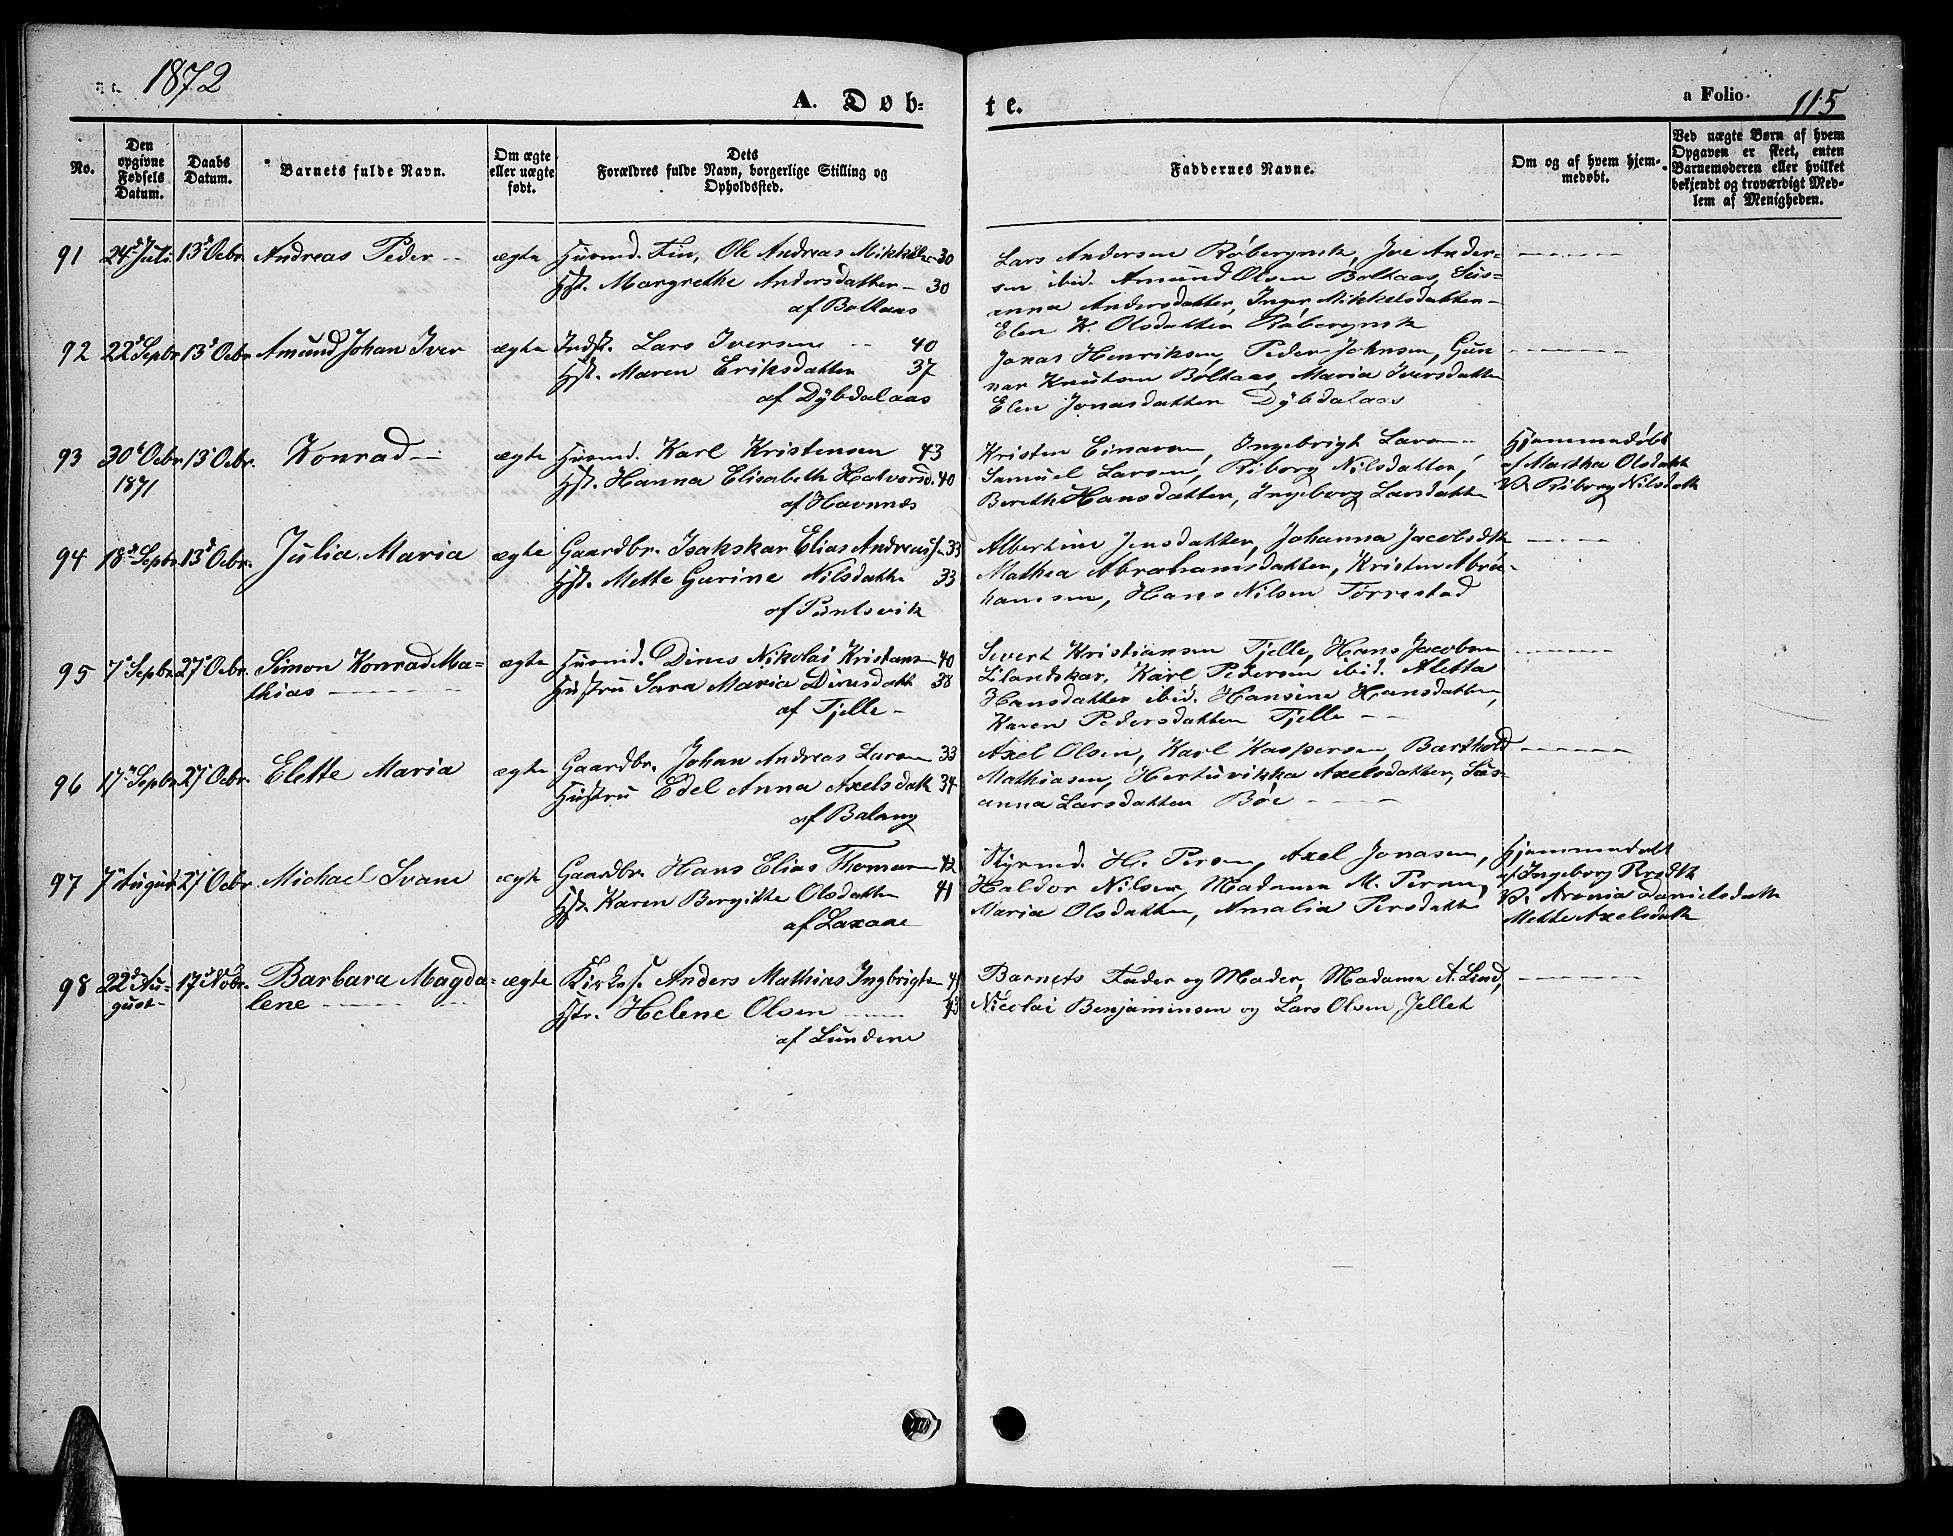 1872
A. Døb-
te.
a Folio.
115
No.
Den opgivne Fødsels Datum.
Daabs Datum.
Barnets fulde Navn.
Om ægte eller uægte født.
Dets Forældres fulde Navn, borgerlige Stilling og Opholdssted.
Faddernes Navne.
Om og af hvem hjemmedøbt.
Ved uægte Børn af hvem Opgaven er skeet, enten Barnemoderen eller hvilket bekjendt og troværdigt Medlem af Menigheden.
91 24de Juli 13de Ocbr. Andreas Peder ægte Husmd. Fin, Ole Andreas Mikkels 30
Hst. Margrethe Andersdatter 30
af Boltaas
Lars Andersen Røbergnsk, Joe Ander-
sen ibid. Amund Olsen Boltaas, Sus-
anna Andersdatter, Inger Mikkelsdatter
Elen K. Olsdatter Røbergnsk
92 22de Sepbr 13de Ocbr Amund Johan Iver ægte Indst. Lars Iversen 40
Hst. Maren Eriksdatter 37
af Dybdalaas
Jonas Henriksen, Peder Johnsen, Gun
nar Knutsen Boltaas, Maria Iversdatter
Elen Jonasdatter Dybdalaas
93 30te Ocbr 1871 13de Ocbr. Konrad ægte Husmd. Karl Kristensen 43
Hst. Hanna Elisabeth Halvorsd. 40
af Havnnæs
Kristen Einarsen, Ingebrigt Larsen
Samuel Larsen, Riborg Nilsdatter,
Bereth Hansdatter, Ingeborg Larsdatter
Hjemmedøbt
af Martha Olsdatt
V. Riborg Nilsdatt
94 18de Sepbr 13de Ocbr. Julia Maria ægte Gaardbr. Isakskar Elias Andreass 33
Hst. Mette Gurine Nilsdatter 33
af Puntsvik
Albertine Jensdatter, Johanna Jacobsdt
Mathea Abrahamsdatter, Kristen Abra-
hamsen, Hans Nilsen Torrestad
95 7de Sepbr 27de Ocbr. Simon Konrad Ma-
thias
ægte Husmd. Dines Nikolai Kristians 40
Hustru Sara Maria Dinesdatt 38
af Tjelle
Sivert Kristiansen Tjelle, Hans Jacobsen
Lilandskar, Karl Pedersen ibid. Aletta
Hansdatter ibid. Hansine Hansdatter,
Karen Pedersdatter Tjelle
96 17de Sepbr 27de Ocbr. Elette Maria ægte Gaardbr. Johan Andreas Larsen 33
Hustru Edel Anna Axelsdatt 34
af Balang
Axel Olsen, Karl Kaspersen, Barthold
Mathiasen, Hertuvikka Axelsdatter, Sus-
anna Larsdatter Böe
97 7de August 27de Ocbr. Michael Ivane ægte Gaardbr. Hans Elias Thomasen 42
Hst. Karen Bergitte Olsdatter 41
af Laxaae
Styrmd. H. Persen, Axel Jonasen,
Haldor Nilsen, Madame M. Persen,
Maria Olsdatter, Amalia Persdatter
Hjemmedøbt
af Ingeborg
V. Aronia Danielsdatt
Mette Axelsdatt
98 22de Au-
gust
17de Nobr. Barbara Magda-
lene
ægte Kirkes. Anders Mathias Ingbrigtsen
Hstr. Helene Olsen 43
af Lundene
Barnets Fader og Moder, Madame A. Lind,
Nicolai Benjaminsen og Lars Olsen Jellet